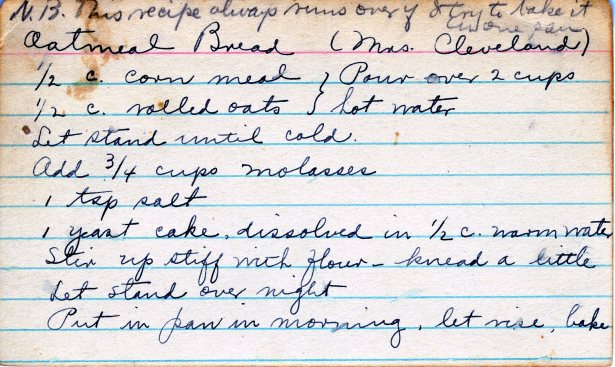 N.B. This recipe always runs over if I try to bake it
in one pan
Oatmeal Bread (Mrs. Cleveland)
1/2 c. corn meal } Pour over 2 cups
1/2 c. rolled oats } hot water
Let stand until cold.
Add 3/4 cups molasses
1 tsp salt
1 yeast cake, dissolved in 1/2 c. warm water
Stir up stiff with flour - knead a little
Let stand over night
Put in pan in morning, let rise, bake